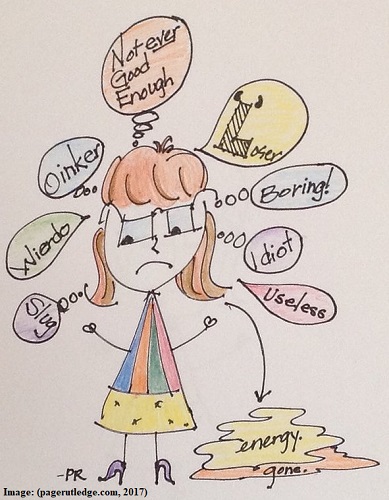 Not ever
Good
Enough
Loser
Oinker
Boring!
Weirdo
Idiot
Slug
Useless
energy.
gone.
-PR
Image: (pagerutledge.com, 2017)